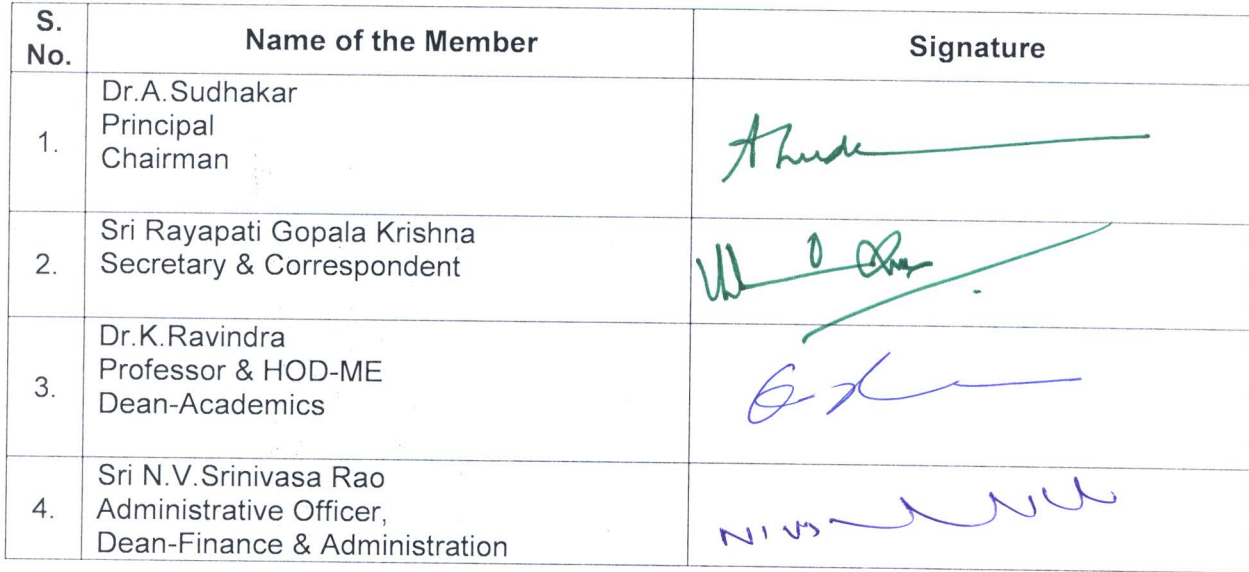 S.
No.
Name of the Member
Signature
1.
Dr.A.Sudhakar
Principal
Chairman
2.
Sri Rayapati Gopala Krishna
Secretary & Correspondent
3.
Dr.K.Ravindra
Professor & HOD-ME
Dean-Academics
4.
Sri N.V.Srinivasa Rao
Administrative Officer,
Dean-Finance & Administration